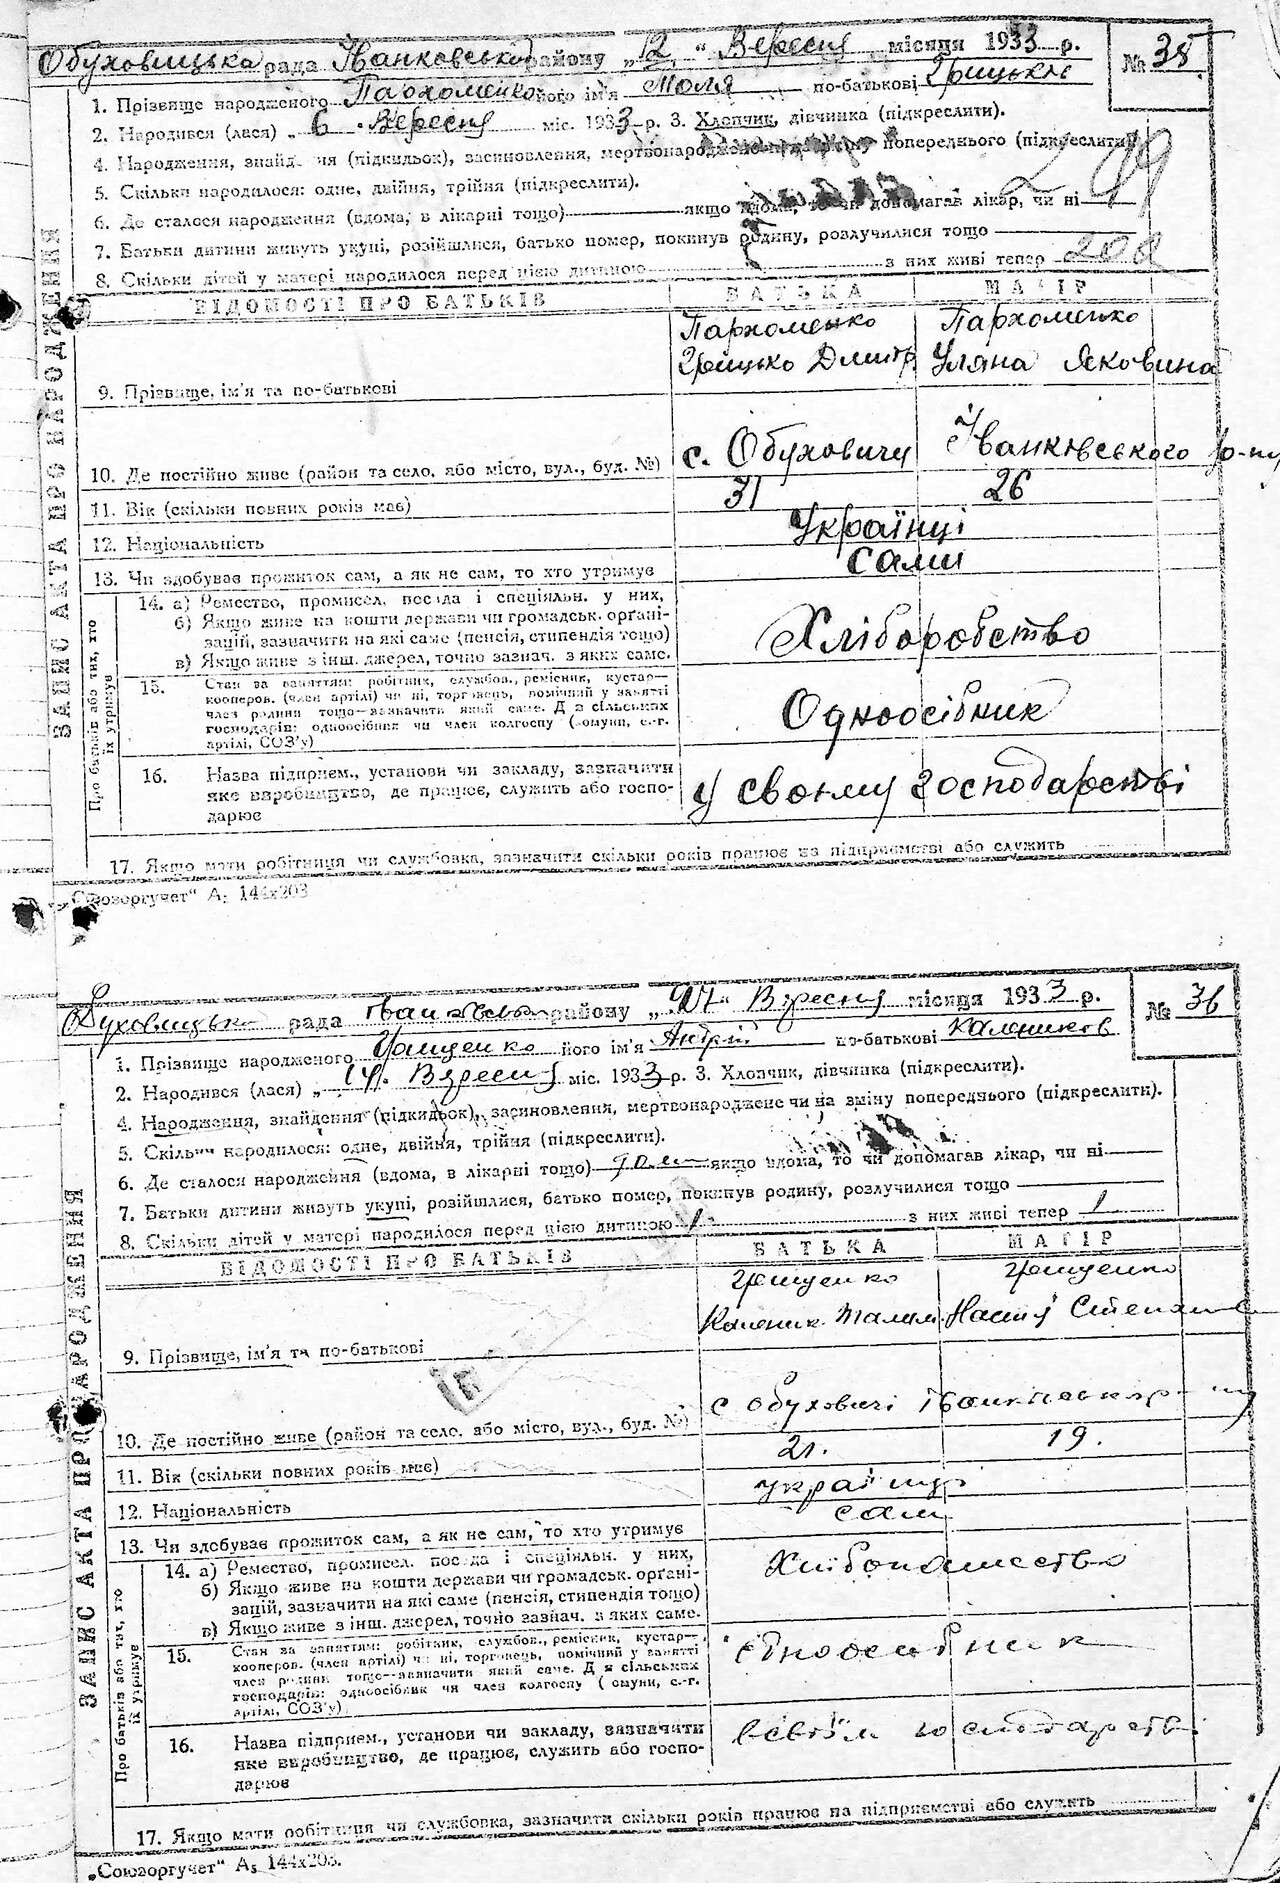 Обуховицька рада Іванковськ району „12" Вересня місяця 1933 р. № 35
1. Прізвище народженого Пархоменко його ім'я Моля по-батькові Грицьков
2. Народився (лася) „ 6 . Вересня міс. 1933 р. 3. Хлопчик, дівчинка (підкреслити).
4. Народження, знайд ня (підкидьок), засиновлення, мертвонароджене попереднього (підкреслити)
5. Скільки народилося: одне, двійня, трійня (підкреслити).
6. Де сталося народження (вдома, в лікарні тощо) якщо вдома, то чи допомагав лікар, чи ні
7. Батьки дитини живуть укупі, розійшлися, батько помер, покинув родину, розлучилися тощо
8. Скільки дітей у матері народилося перед цією дитиною з них живі тепер
ЗАПИС АКТА ПРО НАРОДЖЕННЯ
ВІДОМОСТІ ПРО БАТЬКІВ БАТЬКА МАТІР
Пархоменко Пархоменко
Грицько Дмитр Уляна Яковина
9. Прізвище, ім'я та по-батькові
10. Де постійно живе (район та село, або місто, вул., буд. №) с. Обуховичи Іванківського р-ну
11. Вік (скільки повних років має) 31 26
12. Національність Українці
13. Чи здобуває прожиток сам, а як не сам, то хто утримує сами
Про батьків або тих, хто їх утримує
14. а) Ремество, промисел, посада і спеціяльн. у них,
б) Якщо живе на кошти держави чи громадськ. органі-
зацій, зазначити на які саме (пенсія, стипендія тощо) Хліборобство
в) Якщо живе з інш. джерел, точно зазнач. з яких саме.
15. Стан за заняттям: робітник, службов., ремісник, кустар—
кооперов. (член артілі) чи ні, торговець, помічний у занятті
член родини тощо—зазначити який саме. Д я сільських Одноосібник
господарів: одноосібник чи член колгоспу (комуни, с.-г.
артілі, СОЗ'у)
16. Назва підприєм., установи чи закладу, зазначити
яке виробництво, де працює, служить або госпо- у своєму господарстві
дарює
17. Якщо мати робітниця чи службовка, зазначити скільки років працює на підприємстві або служить
„Союзоргучет" А5 144х203
Обуховицька рада Іванківськ району „ 24 " Вересня місяця 1933 р. № 36
1. Прізвище народженого Грищенко його ім'я Андрій по-батькові Калеников
2. Народився (лася) „ 14. Вересня міс. 1933 р. 3. Хлопчик, дівчинка (підкреслити).
4. Народження, знайдення (підкидьок), засиновлення, мертвонароджене чи на зміну попереднього (підкреслити).
5. Скільки народилося: одне, двійня, трійня (підкреслити).
6. Де сталося народження (вдома, в лікарні тощо) якщо вдома, то чи допомагав лікар, чи ні
7. Батьки дитини живуть укупі, розійшлися, батько помер, покинув родину, розлучилися тощо
8. Скільки дітей у матері народилося перед цією дитиною 1 з них живі тепер 1
ЗАПИС АКТА ПРО НАРОДЖЕННЯ
ВІДОМОСТІ ПРО БАТЬКІВ БАТЬКА МАТІР
Грищенко Грищенко
Каленик Настя Степанів
9. Прізвище, ім'я та по-батькові
10. Де постійно живе (район та село, або місто, вул., буд. №) с Обуховичі Іванківськ р-ну
11. Вік (скільки повних років має) 21. 19.
12. Національність українці
13. Чи здобуває прожиток сам, а як не сам, то хто утримує сами
Про батьків або тих, хто їх утримує
14. а) Ремество, промисел, посада і спеціяльн. у них,
б) Якщо живе на кошти держави чи громадськ. органі- Хлібопашество
зацій, зазначити на які саме (пенсія, стипендія тощо)
в) Якщо живе з інш. джерел, точно зазнач. з яких саме.
15. Стан за заняттям: робітник, службов., ремісник, кустар—
кооперов. (член артілі) чи ні, торговець, помічний у занятті
член родини тощо—зазначити який саме. Д я сільських Одноосібник
господарів: одноосібник чи член колгоспу ( омуни, с.-г.
артілі, СОЗ'у)
16. Назва підприєм., установи чи закладу, зазначити
яке виробництво, де працює, служить або госпо- всвоїм господарстві
дарює
17. Якщо мати робітниця чи службовка, зазначити скільки років працює на підприємстві або служить
„Союзоргучет" А5 144х203.